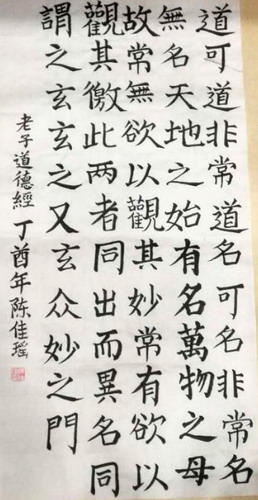 道可道非常道名可名非常名
無名天地之始有名萬物之母
故常無欲以觀其妙常有欲以
觀其徼此两者同出而異名同
謂之玄玄之又玄众妙之門
老子道德經 丁酉年陈佳瑶